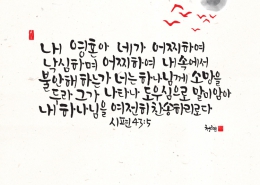 내 영혼아 네가 어찌하여
낙심하며 어찌하여 내 속에서
불안해 하는가 너는 하나님께 소망을
두라 그가 나타나 도우심으로 말미암아
내 하나님을 여전히 찬송하리로다
시편 43:5